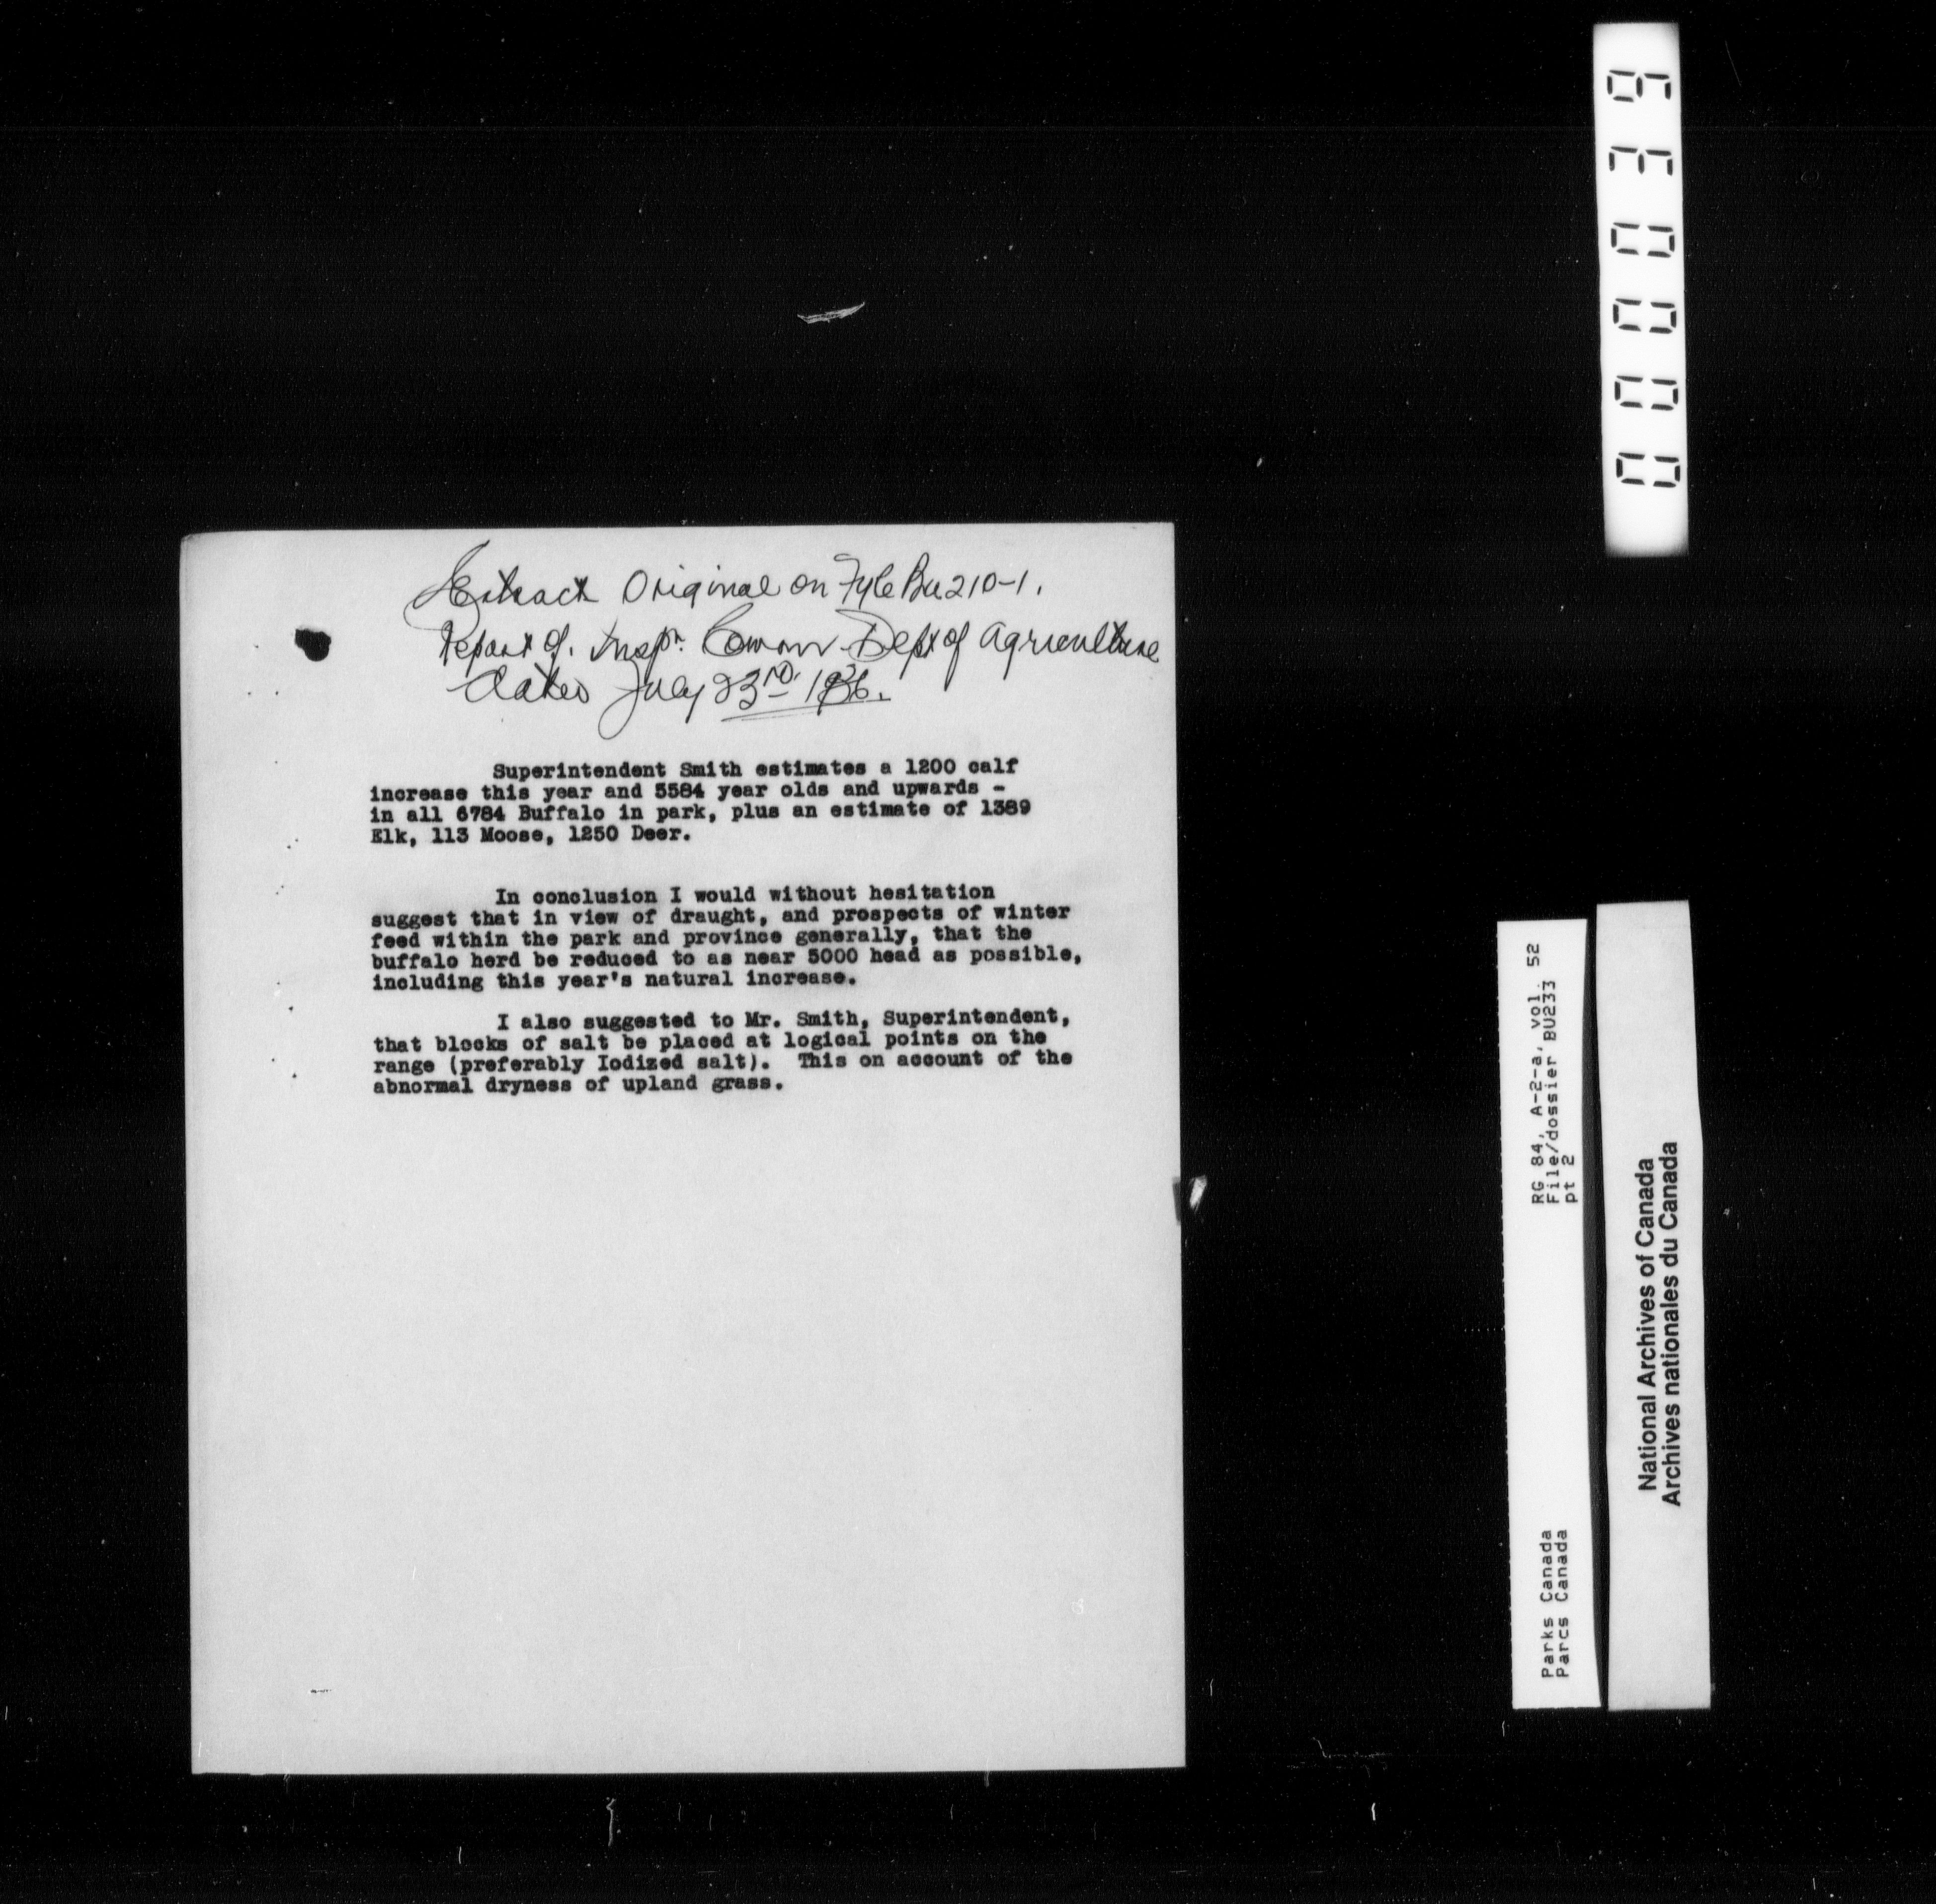 Extract Original on Fyle Bu210-1.
Report of. Insp. Cowan Dept of Agriculture
dated July 23rd 1936.
Superintendent Smith estimates a 1200 calf
increase this year and 5584 year olds and upwards -
in all 6784 Buffalo in park, plus an estimate of 1389
Elk, 113 Moose, 1250 Deer.
In conclusion I would without hesitation
suggest that in view of draught, and prospects of winter
feed within the park and province generally, that the
buffalo herd be reduced to as near 5000 head as possible,
including this year's natural increase.
I also suggested to Mr. Smith, Superintendent,
that blocks of salt be placed at logical points on the
range (preferably Iodized salt). This on account of the
abnormal dryness of upland grass.
Parks Canada
Parcs Canada
RG 84, A-2-a, vol. 52
File/dossier BU233
pt 2
National Archives of Canada
Archives nationales du Canada